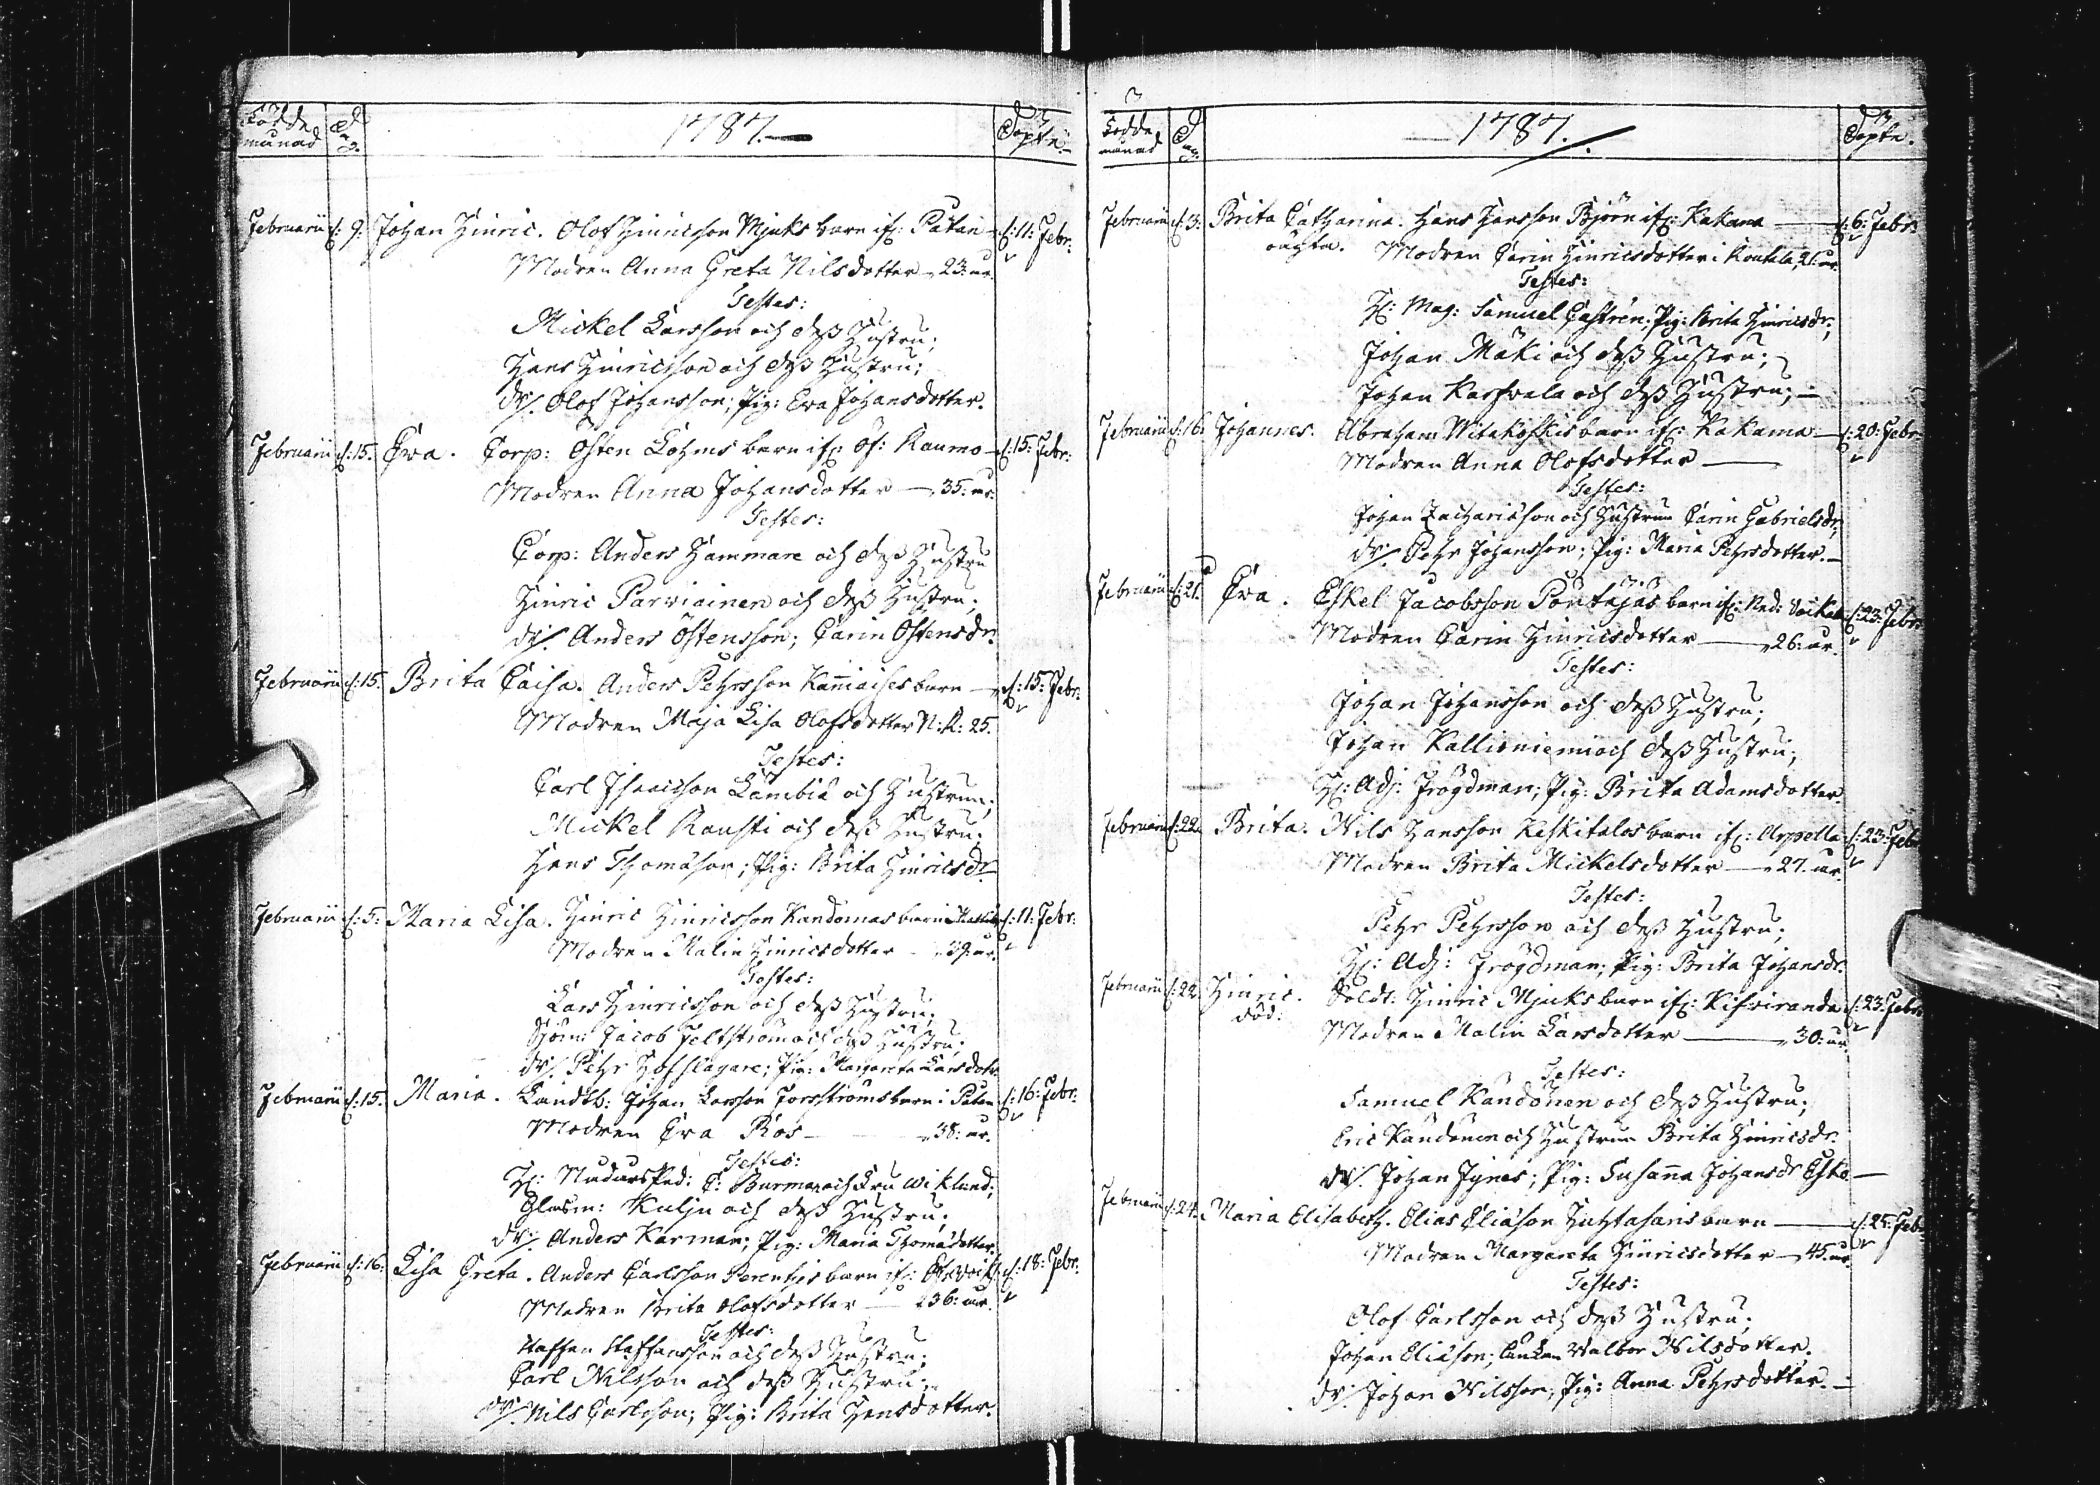 Födde månad Dag 1787. Döpte
Februarii d. 9. Johan Hinric. Olof Hinricsson Mjuks barn ifr: Pätän d: 11: Febr:
Modren Anna Greta Nilsdotter 23 år
Testes:
Mickel Larsson och dess Hustru;
Hans Hinricsson och dess Hustru;
Dr: Olof Johansson; Pig: Eva Johansdotter.
Februarii d: 15. Eva. Corp: Östen Lohms barn ifr: Öf: Raumo d: 15: Febr:
Modren Anna Johansdotter 35: år.
Testes:
Corp: Anders Hammare och dess Hustru
Hinric Parviainen och dess Hustru;
Dr: Anders Östensson; Carin Östensdr:
Februarii d: 15. Brita Caisa. Anders Pehrsson Kanniaises barn d: 15: Febr:
Modren Maja Lisa Olofsdotter N: R: 25.
Testes:
Carl Isaacsson Lämbiä och Hustrun;
Mickel Rausti och dess Hustru;
Hans Thomasson; Pig: Brita Hinricsdr
Februarii d: 5: Maria Lisa. Hinric Hinricsson Kandomas barn d: 11: Febr:
Modren Malin Hinricsdotter 39: år.
Testes:
Lars Hinricsson och dess Hustru;
Jacob Feltström och dess Hustru;
Dr: Pehr Hofslagare; Pig: Margareta Larsdotr
Februarii d: 15. Maria. Landtb: Johan Larsson Forsströms barn i d: 16: Febr:
Modren Eva Ros 38: år.
Testes:
H: Burman och Fru Wiklund;
Glasm: Kulju och dess Hustru;
Dr: Anders Karman; Pig: Maria Thomædotter.
Februarii d: 16: Lisa Greta. Anders Carlsson Perenthis barn ifr: d: 18: Febr:
Modren Brita Olofsdotter 36: år.
Testes:
Staffan Staffansson och dess Hustru;
Carl Nilsson och dess Hustru;
Dr: Nils Carlsson; Pig: Brita Hansdotter.
Födde månad Dag 1787. Döpte.
Februarii d: 3: Brita Catharina. Hans Hansson Björn ifr: Kakama d: 6: Febr:
oächta. Modren Carin Hinricsdotter i Koutila, 21: år.
Testes:
H: Mag: Samuel Castrén; Pig: Brita Hinricsdr;
Johan Mäki och dess Hustru;
Johan Karhvala och dess Hustru;
Februarii d: 16. Johannes. Abraham Witakoskis barn ifr: Kakama d: 20: Febr:
Modren Anna Olofsdotter
Testes:
Johan Zachariæson och Hustrun Carin Gabrielsdr;
Dr: Pehr Johansson; Pig: Maria Pehrsdotter.
Februarii d: 21. Eva. Eskel Jacobsson Pontajas barn ifr: Ned: Voikala d: 23: Febr:
Modren Carin Hinricsdotter 26: år.
Testes:
Johan Johansson och dess Hustru;
Johan Kallioniemi och dess Hustru;
H: Adj: Frögdman; Pig: Brita Adamsdotter.
Februarii d: 22. Brita. Nils Hansson Keskitalos barn ifr: Arpella d: 23: Febr:
Modren Brita Mickelsdotter 27. år.
Testes:
Pehr Pehrsson och dess Hustru;
H: Adj: Frögdman; Pig: Brita Johansdr.
Februarii d: 22. Hinric. Soldt: Hinric Mjuks barn ifr: Kihviranda d: 23: Febr:
död: Modren Malin Larsdotter 30: år.
Testes:
Samuel Kandonen och dess Hustru;
Eric Kandonen och Hustrun Brita Hinricsdr.
Dr: Johan Fynes; Pig: Susanna Johansdr Esko
Februarii d: 24. Maria Elisabeth. Elias Eliæson Huhtasaris barn d: 25: Feb:
Modren Margareta Hinricsdotter 45: år.
Testes:
Olof Carlsson och dess Hustru;
Johan Eliæson; Walbor Nilsdotter.
Dr: Johan Nilsson; Pig: Anna Pehrsdotter.